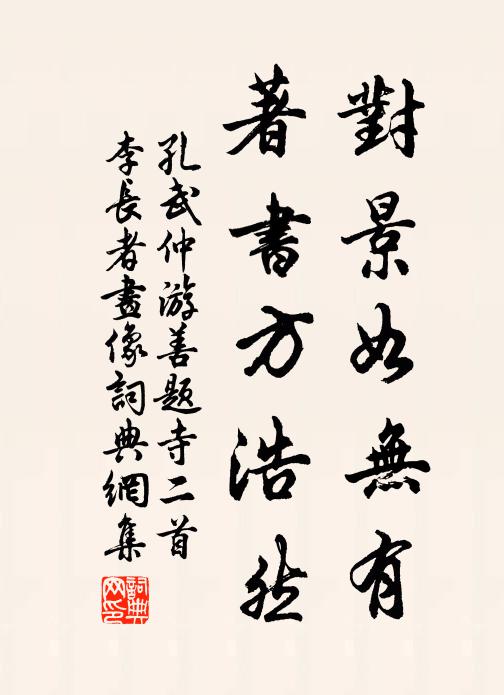 對景如無有
著書方浩然
孔武仲游善題寺二首
李長者畫像詞典網集
詞典網印